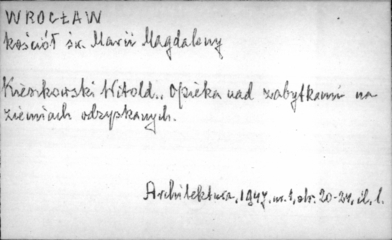 WROCŁAW
kościół św. Marii Magdaleny
Kieszkowski Witold., Opieka nad zabytkami na
ziemiach odzyskanych.
Architektura, 1947, nr. 1, str. 20-24, il. 1.